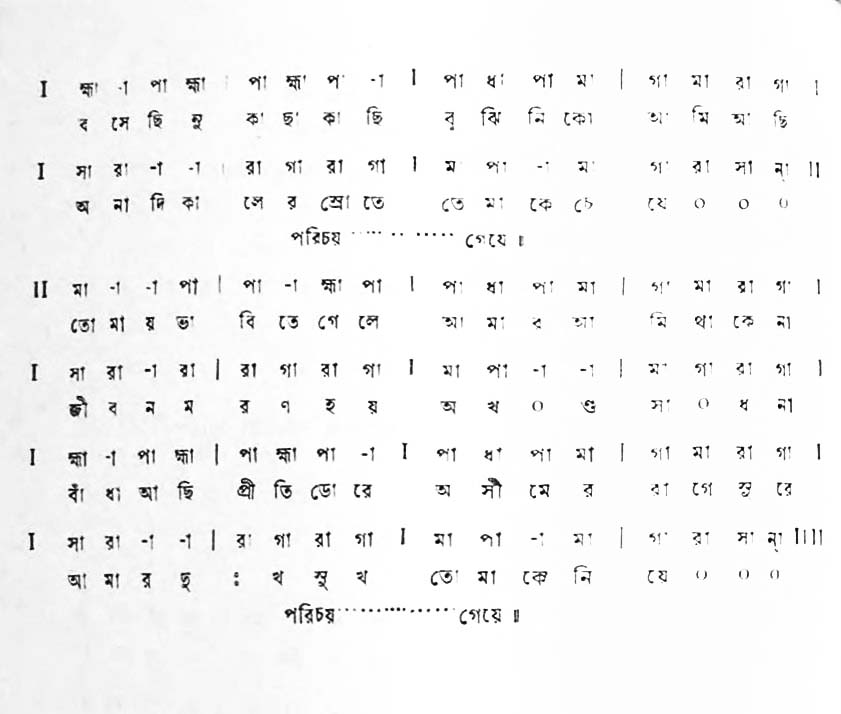 I হ্মা -া পা হ্মা | পা হ্মা পা -া I পা ধা পা মা | গা মা রা গা I
ব সে ছি নু কা ছা কা ছি বু ঝি নি কো আ মি আ ছি
I সা রা -া -া | রা গা রা গা I মা পা -া মা গা রা সা ন্া II
অ না দি কা লে র স্রো তে তে মা কে চে যে ০ ০ ০
পরিচয় ··········· গেয়ে ॥
II মা -া -া পা | পা -া হ্মা পা I পা ধা পা মা | গা মা রা গা I
তো মা য় ভা বি তে গে লে আ মা র আ মি থা কে না
I সা রা -া রা | রা গা রা গা I মা পা -া -া | মা গা রা গা I
জী ব ন ম র ণ হ য় অ খ ০ ণ্ড সা ০ ধ না
I হ্মা -া পা হ্মা | পা হ্মা পা -া I পা ধা পা মা | গা মা রা গা I
বাঁ ধা আ ছি প্রী তি ডো রে অ সী মে র রা গে সু রে
I সা রা -া -া | রা গা রা গা I মা পা -া মা | গা রা সা ন্া IIII
আ মা র দু ঃ খ সু খ তো মা কে নি যে ০ ০ ০
পরিচয় ··············· গেয়ে ॥